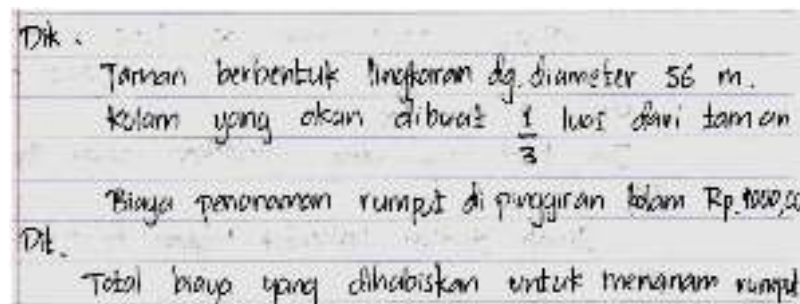 Dik.
Taman berbentuk lingkaran dg. diameter 56 m.
Kolam yang akan dibuat 1/3 luas dari taman
Biaya penanaman rumput di pinggiran kolam Rp.
Dit.
Total biaya yang dihabiskan untuk menanam rumput